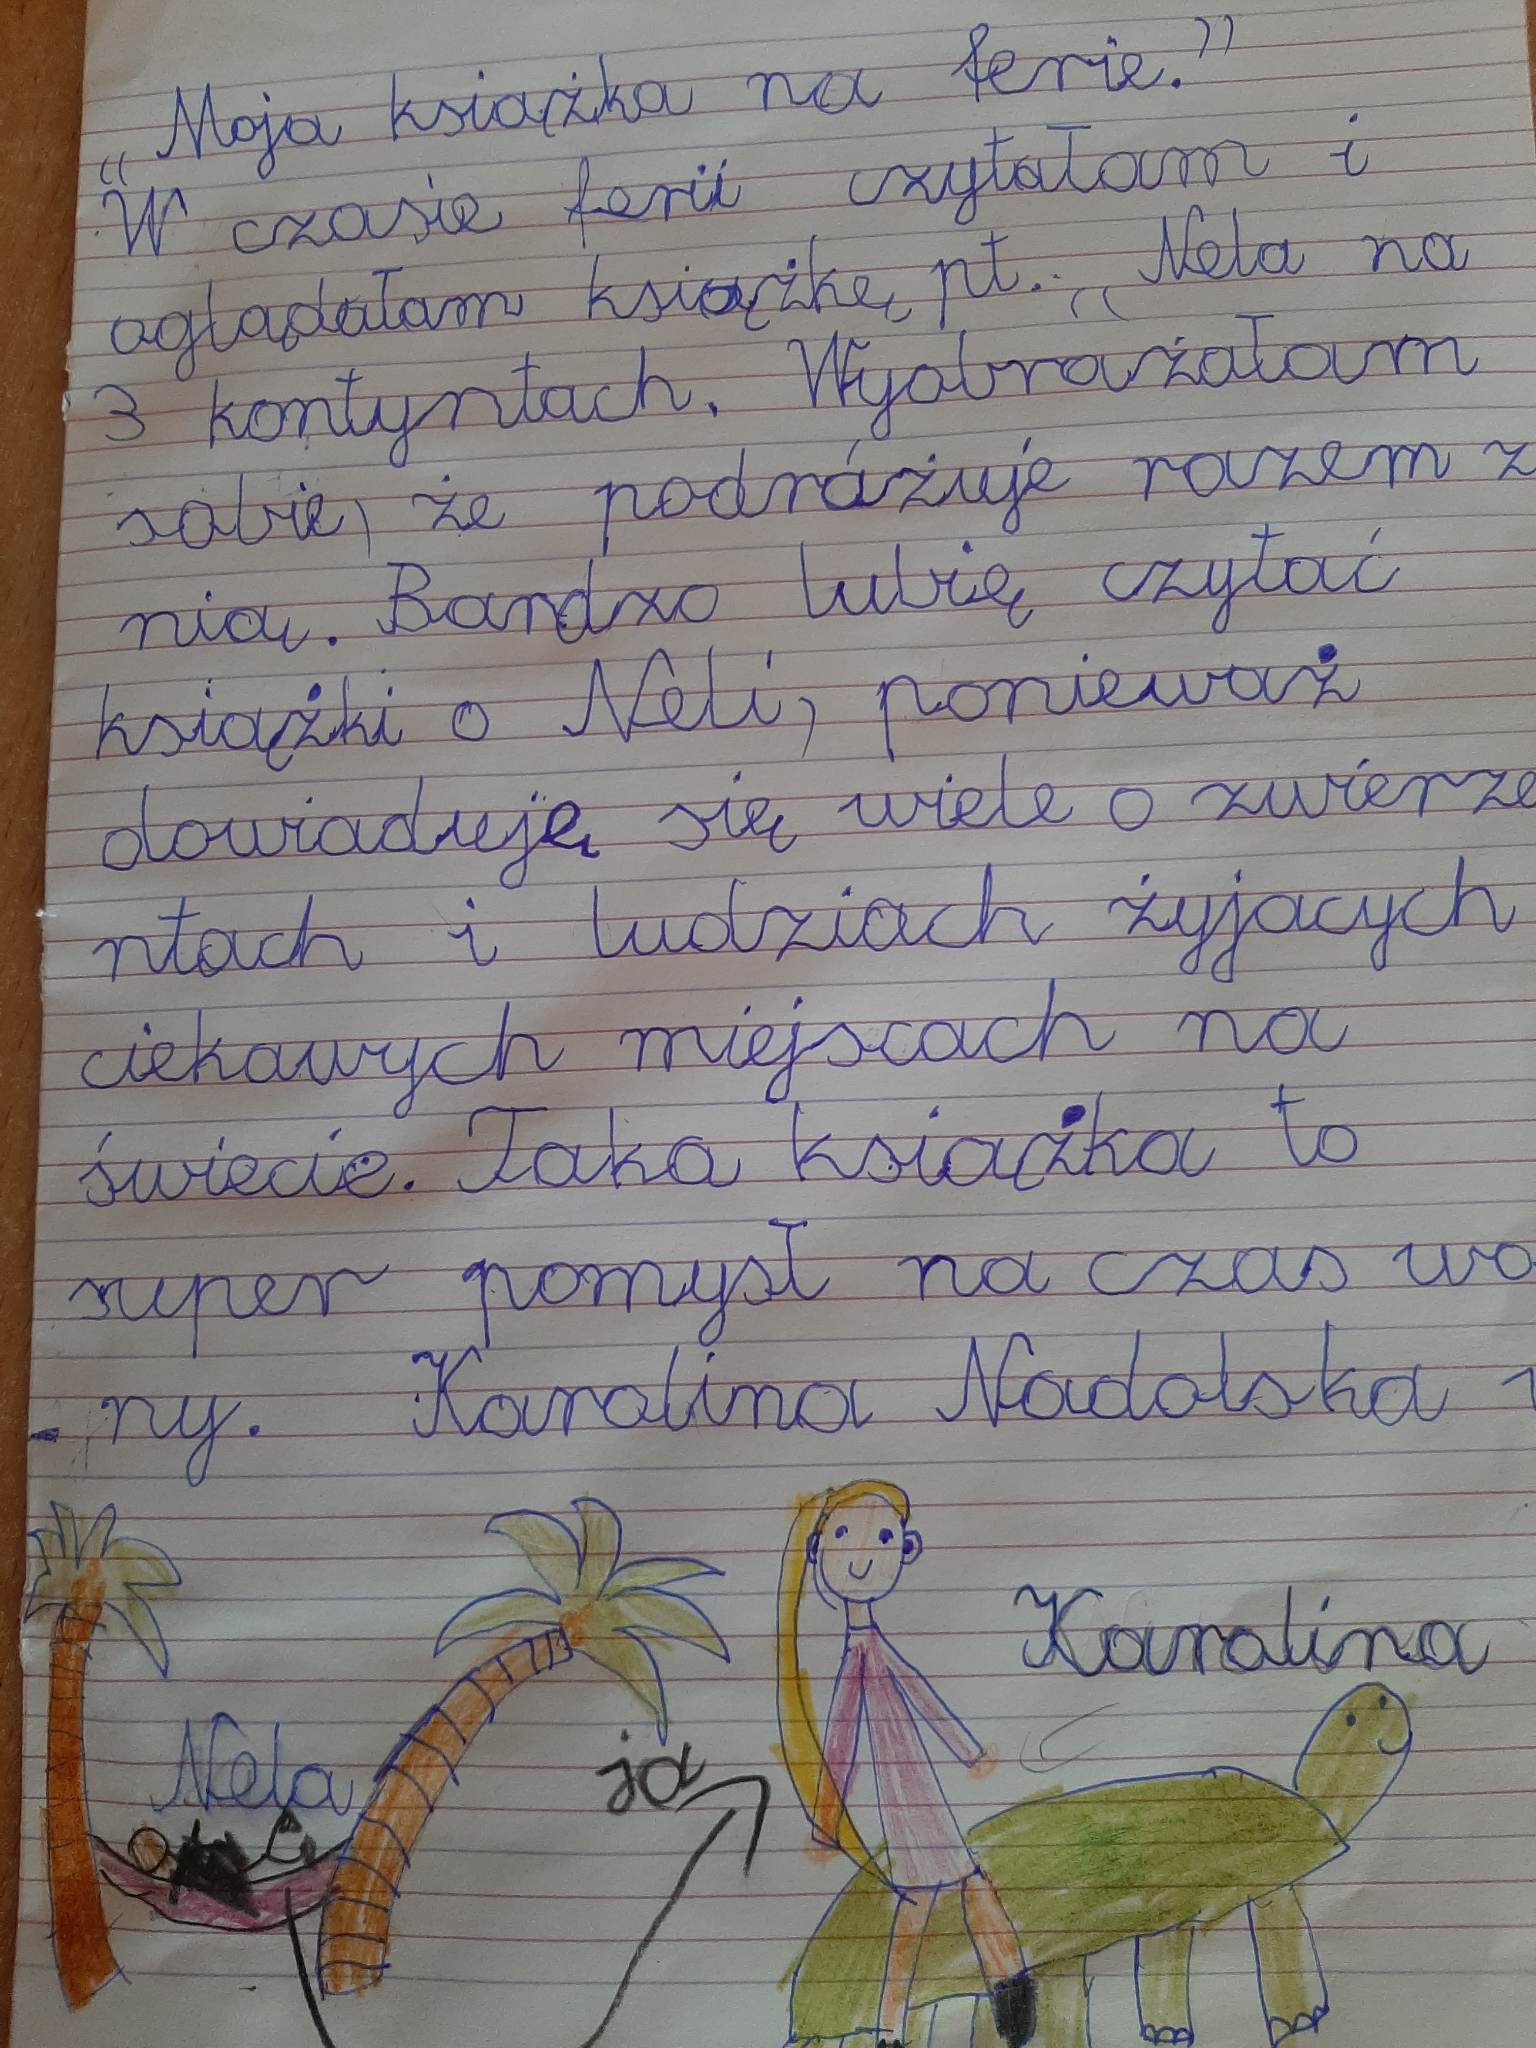 „Moja książka na ferie.”
W czasie ferii czytałam i
oglądałam książkę pt. „Nela na
3 kontyntach. Wyobrażałam
sobie, że podróżuje razem z
nią. Bardzo lubię czytać
książki o Neli, ponieważ
dowiaduję się wiele o zwierzę
ntach i ludziach żyjacych
ciekawych miejscach na
świecie. Taka książka to
super pomysł na czas wo
- ny. Karolina Nadolska
Karolina
Nela
ja